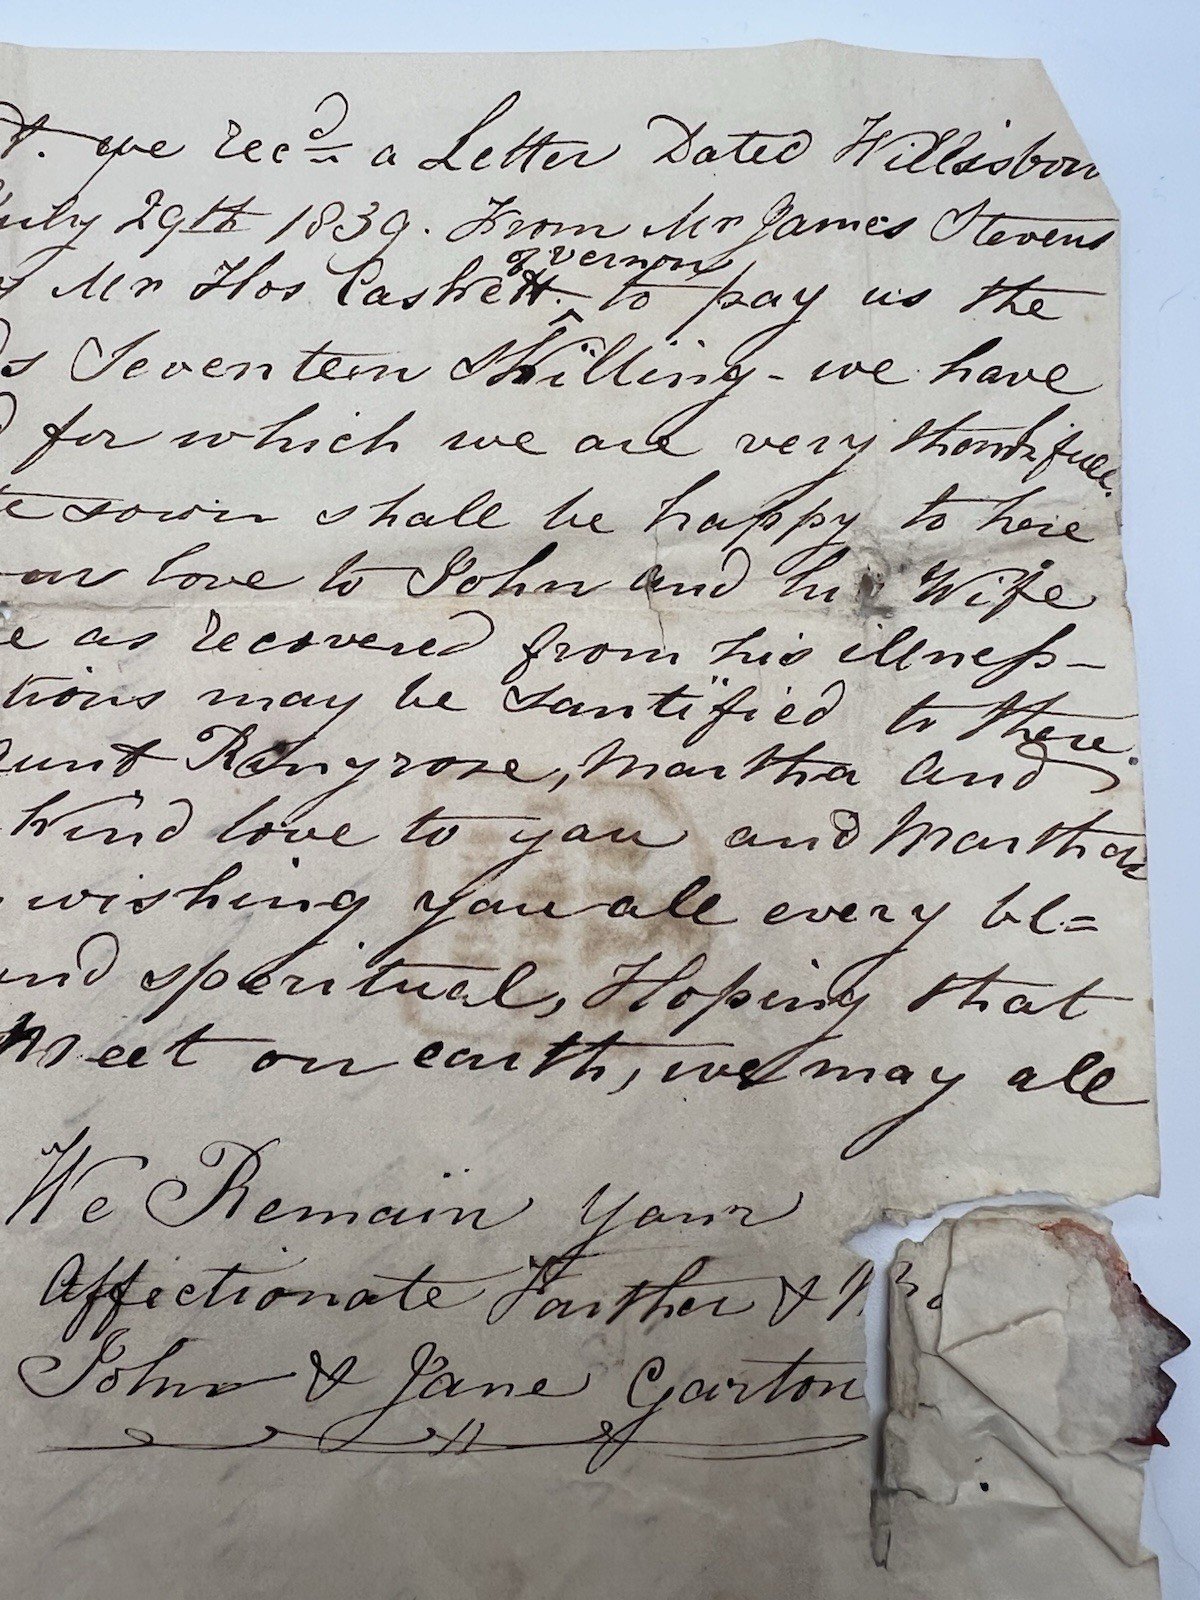 t. we rec'd a Letter Dated Willsborou
July 29th 1839. From Mr James Stevens
Mr Thos Caskett. of Vernon to pay us the
ds Seventeen Shilling - we have
d for which we are very thankfull.
te sown shall be happy to here
our love to John and his Wife
e as recovered from his illness-
tions may be santified to there.
aunt Rangrose, Martha and
Kind love to you and Martha
wishing you all every bl=
and speritual, Hoping that
Meet on earth, we may all
We Remain your
Affectionate Farther &
John & Jane Garton